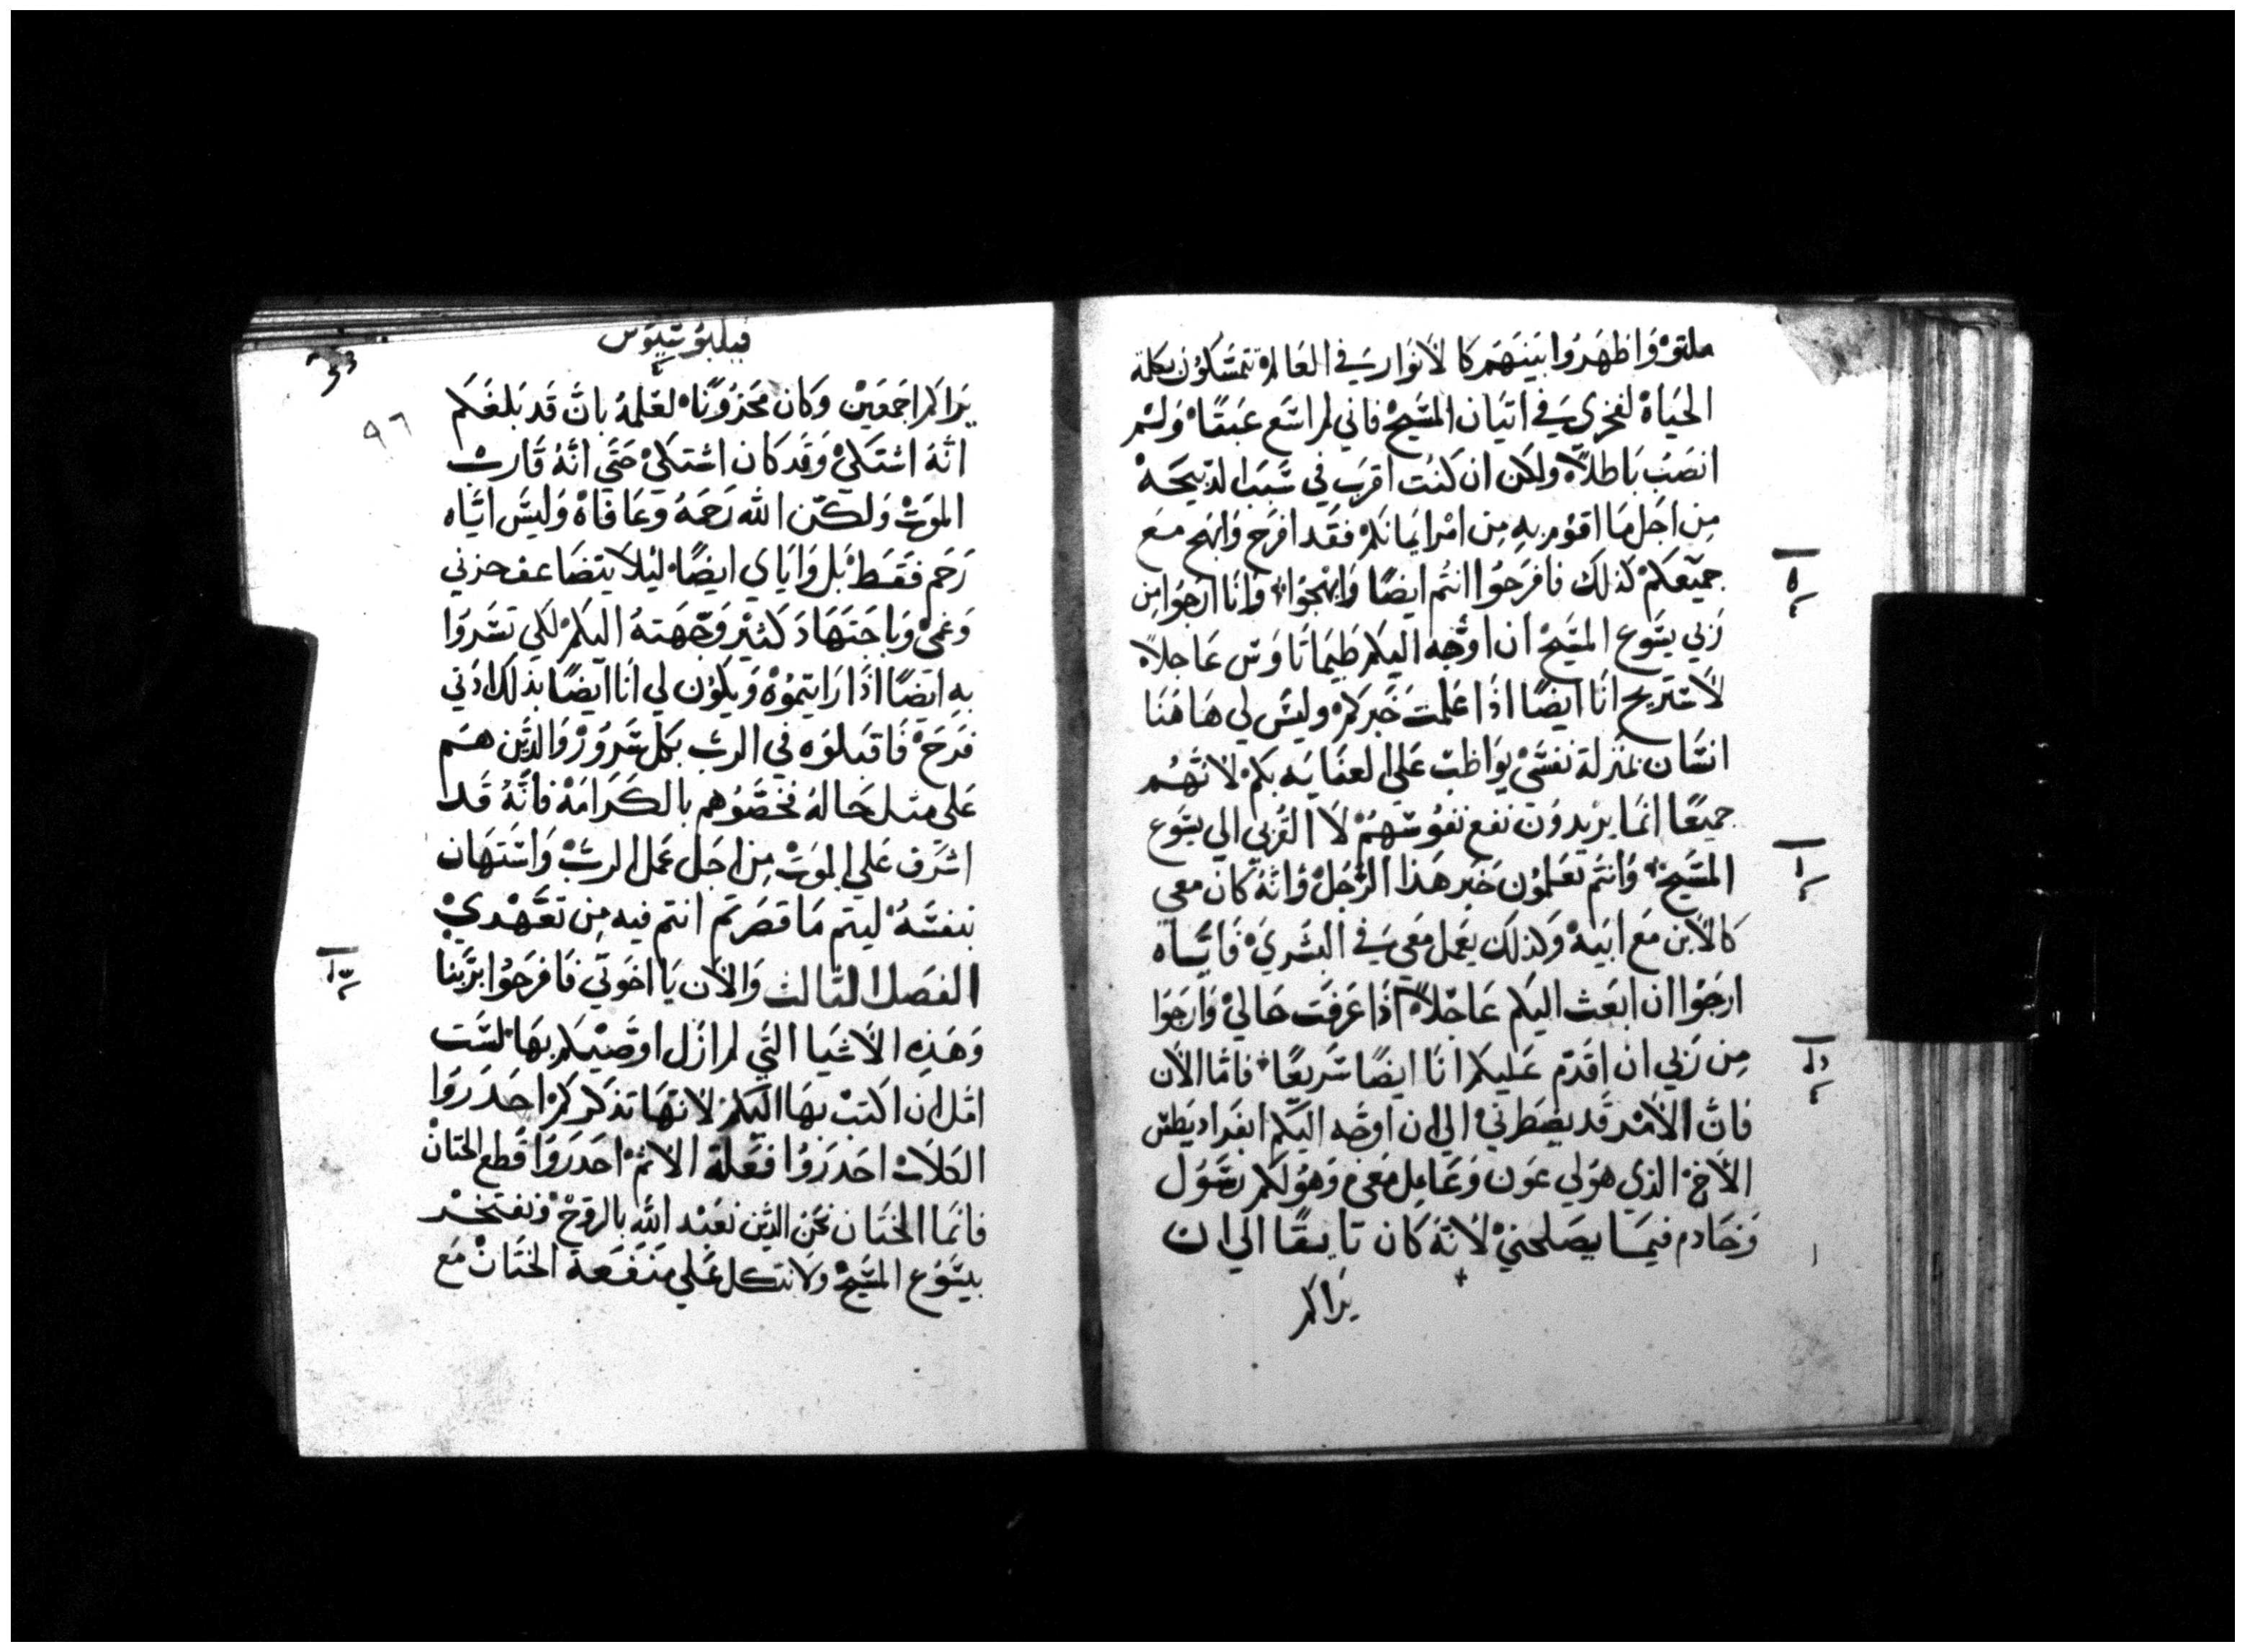 ملتوۛ وَاظهَرُوا بَينَهَم كَا لاَنوَار يَۓ في العَالم تتمسَّكوُن بكلمة
الحَيَاة لفخري يَۓ في اتيَان المسَّيح فاني لم اسَّع عَبَثًا وَلم
انصَبُ بَاطلاً ولكن ان كنُت اقرَب في سَّبَب الدبيحَة
مِن اجَل مَا اقوُم بهِ مِن امْر ايمَانكم فقَد افرَح وَابهج معَ
جميَعكم كذلك فافرَحوُا انتُم ايضًا وَابهجُوا وَانَا ارجُوا مِن
رَبي يسَّوع المسَّيح ان اوَّجه اليكم طيمَاتَاوَس عَاجلاً
لاسَتريح انَا ايضًا اذَا عَلمت خَبَركم وليسَّ لي هَاهُنَا
انسَّان بمنَزلة نفسَّى يوَاظبُ عَلى العنَايَه بكم لاَنّهُم
جميعًا انمَا يرْيدوُن نفع نفوُسَّهُم لاَ القُربي الي يسَّوع
المسَّيح وَانتُم تعَلموُن خَبَر هَذا الرَّجُل وَانهُ كانَ معي
كَالاَبن مَع ابيَه وَكذلك يَعَمل مَعي يَۓ في البشرَيَ فايَّاه
ارجَوُا ان ابعَث اليكم عَاجَلاً اذَا عَرفَت حَالي وَارجَوا
مِن رَبي ان اقَدم عَليكم انَا ايضًا سَّريعًا فامَّا الاَن
فان الاَمْر قَد يضَطرني الى ان اوَجَه اليكم ابفَرادَيطسَّ
الاَخ الذي هوَ لي عَون وَعَامِل مَعي وَهوُ لكم رَسَّوُل
وَخَادم فيمَا يصَلحني لاَنهُ كَان تايقًا الي ان
يَراكم
فيلبوُسَّيوَس
٩٦
يَراكم اجمَعَين وَكَان محَزوَنًا لعَلمهُ بانَّ قَد بَلغَكم
انهُ اشتَكىۛ وَقَد كَان اشتكىۛ حَتي انهُ قَارب
الموَت وَلكن الله رَحمَهُ وعَافَاهُ وَليسَّ ايَّاه
رَحَم فقَط بَل وَايَاي ايضًا ليَلاَ يتضَاعف حزني
وَغمى وَباجَتهَاد كثيْر وَجّهَتهُ اليكم لكي تسَّروَا
بهِ ايَضًا اذَا رَايتموُه وَيكوُن لي انَا ايضًا بذلك ادَني
فرَحَ فَاقبَلوَه في الرب بكل سَّروَر وَالذين هسَم
عَلي مثل حَالهُ فخصَّوُهم بالكَرَامَة فانَّهُ قَد
اشرَف عَلي الموَت مِن اجَل عَمل الربّ وَاسَتهَان
بنفسَّهُ ليتم مَا قصَرتم انتم فيه مِن تعَهْدي
الفصَل التالث وَالاَن يَااخوَتي فَافرَحَوُا برَبنا
وَهَذِه الاَشيَا التَي لم ازَل اوَصَيكم بهَا لسَّت
امَل ان اكتبَ بهَا اليكم لاَنهَا تذكركم احَدَروَا
الكلاَب احَدَروُا فعَلة الاثم احَدَروَا قَطع الختَانْ
فانمَا الختَان نحَن الذين نعَبْد الله بالروُح وَنفتخَر
بيسَّوُع المسَّيح وَلاَ نتكل عَلي مَنفَعَة الختَان مَع